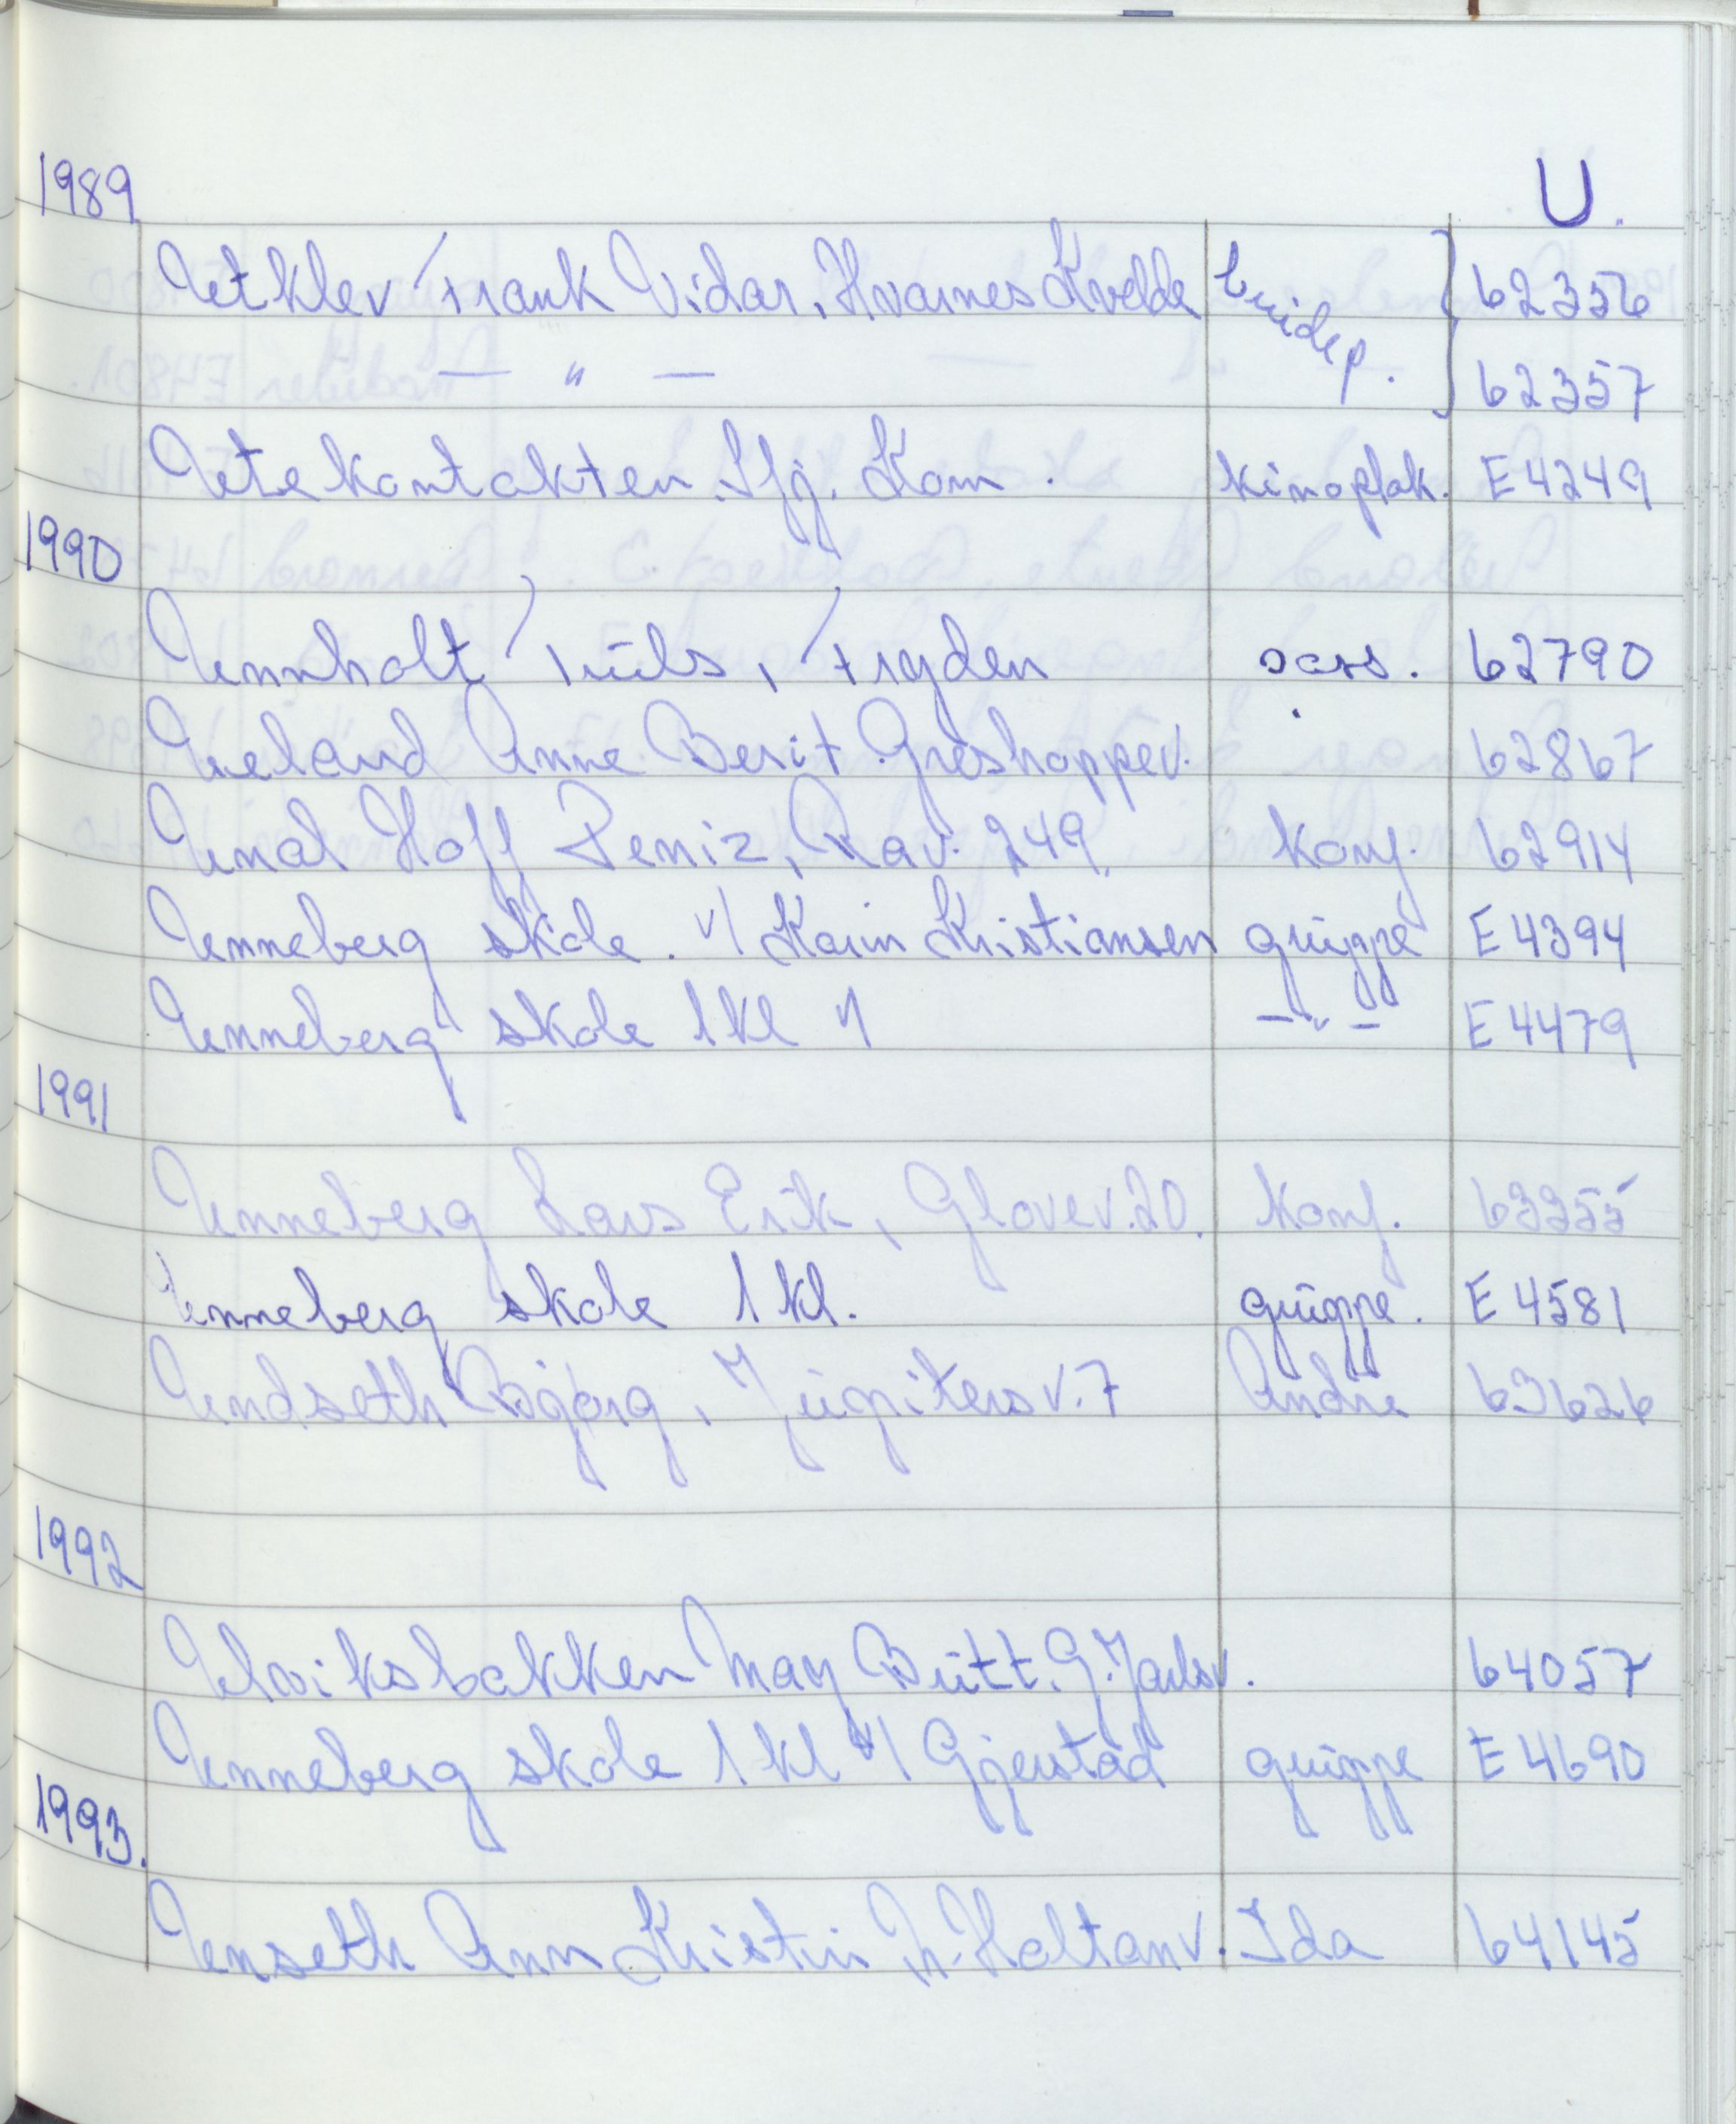 1989 U.
Utklev Frank Vidar, Hvarnes Kvelde brudep. 62356
— " — 62357
Utekontakten. Sfj. Kom. kinoplak. E4249
1990
Unnholt Truls, Fryden pass. 62790
Ueland Anne Berit Greshoppev. 62867
Unal Hoff Deniz, Rav. 249 konf. 62914
Unneberg skole. v/ Karin Kristiansen gruppe E4394
Unneberg skole 1kl v/ —"— E4479
1991
Unneberg Lars Erik, Glover. 20. konf. 63355
Unneberg skole 1 kl. gruppe. E4581
Undseth Bjørg, Jupiters v. 7 Andre 63626
1992
Ulviksbakken May Britt. G. Jarlsv. 64057
Unneberg skole 1 kl v/ Gjerstad gruppe E4690
1993.
Unseth Ann Kristin N. Holtanv. Ida 64145